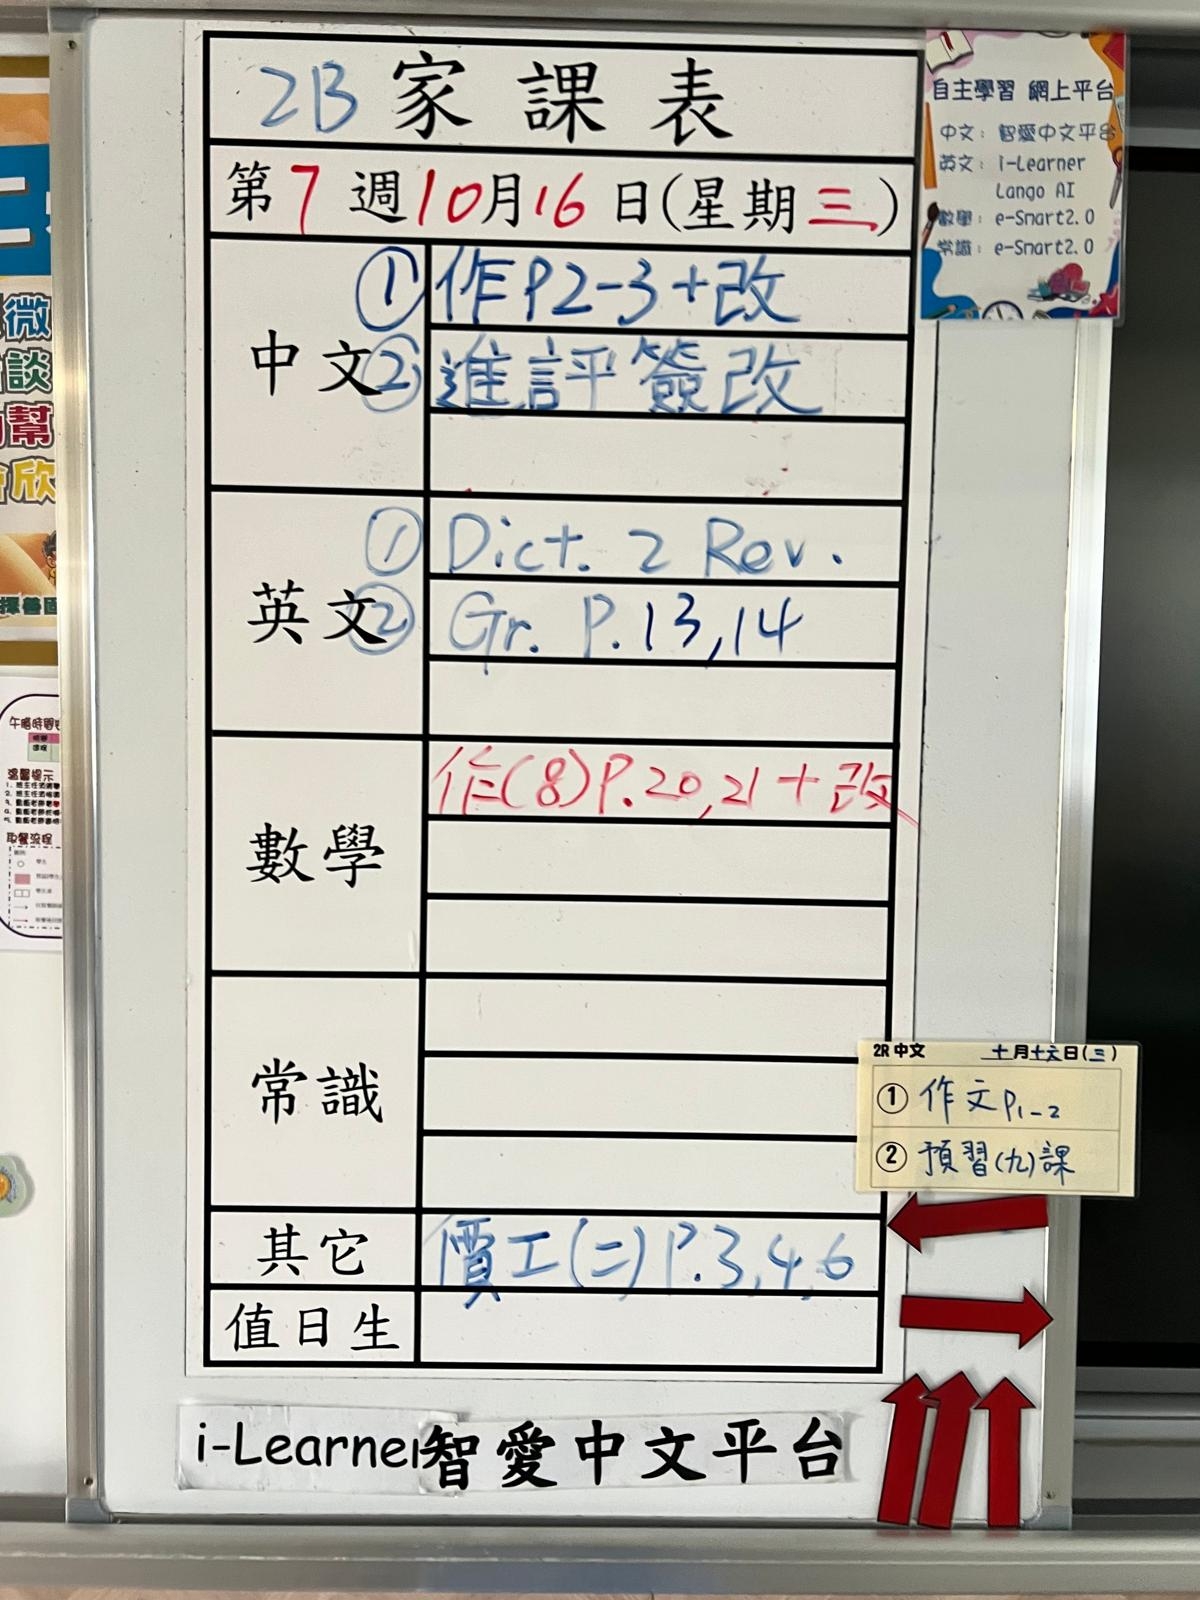 2B 家課表
第7週10月16日(星期三)
中文
① 作P2-3+改
② 進評簽改
英文
① Dict. 2 Rev.
② Gr. P.13,14
數學
作(8)P.20,21+改
常識
其它
價工(二)P.3,4,6
值日生
i-Learner
智愛中文平台
自主學習 網上平台
中文: 智愛中文平台
英文: i-Learner
Lango AI
數學: e-Smart2.0
常識: e-Smart2.0
2R 中文 十月十六日(三)
① 作文P1-2
② 預習(九)課
微
談
幫
欣
午膳時間
溫馨提示
取餐流程